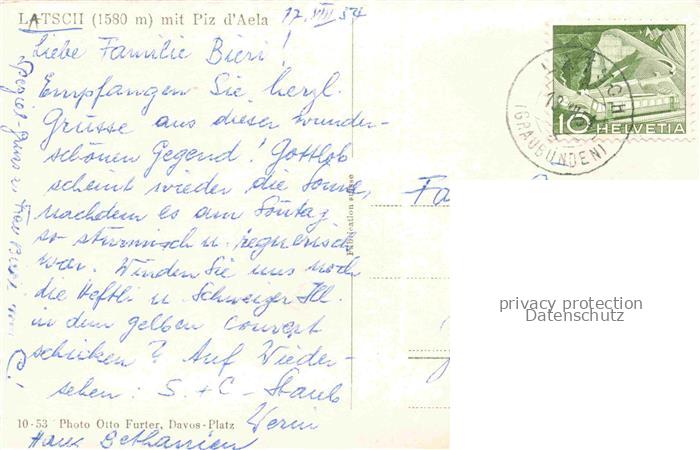 LATSCH (1580 m) mit Piz d'Aela
17. VIII 54
Liebe Familie Bieri!
Empfangen Sie herzl.
Grüsse aus dieser wunder-
schönen Gegend! Gottlob
scheint wieder die Sonne,
nachdem es am Sontag
so stürmisch u. regnerisch
war. Würden Sie uns noch
die Heftli u. Schweizer Ill.
in dem gelben Couvert
schicken? Auf Wieder-
sehen: S. + C. Staub
Haus Bethanien
Spezial-Gruss an Frau Bieri von
C.!
10-53 Photo Otto Furter, Davos-Platz
Publication suisse
Fa
10 HELVETIA
LATSCH
(GRAUBÜNDEN)
privacy protection
Datenschutz